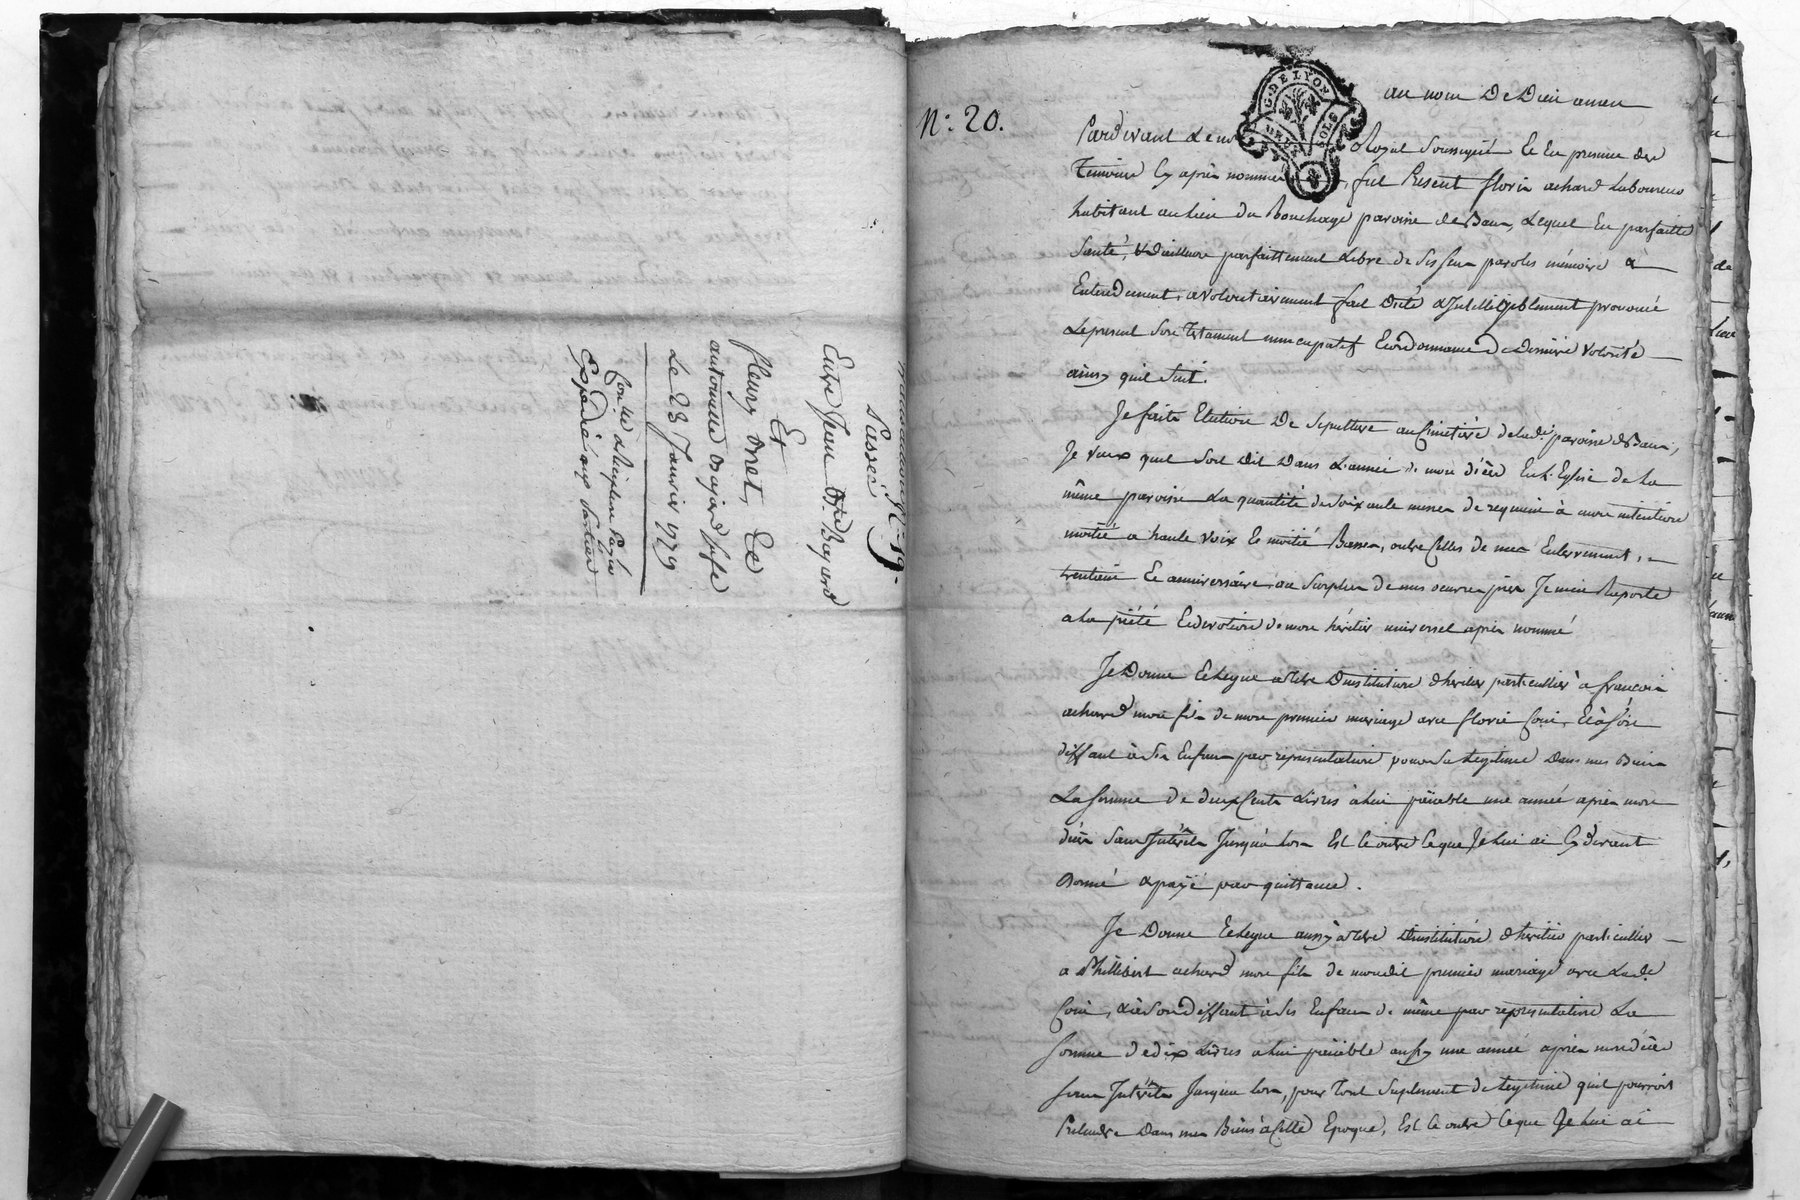 N°: 19.
Passée
Entre Jean Bte Bayard
Et
fleury Met, Ee
antoinette Majard sa fe
Le 23 Janvier 1779
Controlé
Expedié aux parties
N°: 20.
G. DE LYON
SOLS
au nom De Dieu amen
Pardevant Le no Royal Soussigné Et En presence des
Temoins Cy après nommés, fut Present floris achard Laboureur
habitant au lieu du Bouchage paroisse de Bau, Lequel En parfaitte
Santé, & D'ailleurs parfaittement Libre de Ses Sens paroles mémoire &
Entendement, a volontairement fait Dicté & Intelligiblement prononcé
Le present Son Testament nuncupatif Et ordonnance De Derniere Volonté
ainsy quil Suit.
Je faits Elution De Sepulture au Cimetiere de Lade paroisse de Bau,
Je veux quil Soit Dit Dans L'année de mon Décès En L'Eglise de La
même paroisse La quantité de Soixante messes de requiem à mon intention
moitié a haute voix Et moitié Basses, outre Celles de mes Enterrement,
trentaine Et anniversaire au Surplus de mes oeuvres pies Je m'en Raporte
a La piété Et devotion de mon héritier universel après nommé
Je Donne Et Legue a titre D'institution d'heritier particullier à francois
achard mon fils de mon premier mariage avec florie Coin, Et à Son
deffaut à Ses Enfans par representation pour Sa Legitime Dans mes Biens
La Somme De deux Cents Livres à Lui païable une année après mon
décès Sans Intérêts Jusqu'a Lors Et Ce outre Ce que Je Lui ai Cy Devant
Donné & payé par quittance.
Je Donne Et Legue aussy à titre D'institution d'heritier particullier
a Philibert achard mon fils de mondit premier mariage avec Lade
Coin, & à Son deffaut à Ses Enfans de même par representation La
Somme de dix Livres a Lui païable aussy une année après mon décès
Sans Intérêts Jusqu'a Lors, pour Tout Suplement de Legitime quil pourroit
Pretendre Dans mes Biens à Cette Epoque, Et Ce outre Ce que Je Lui ai